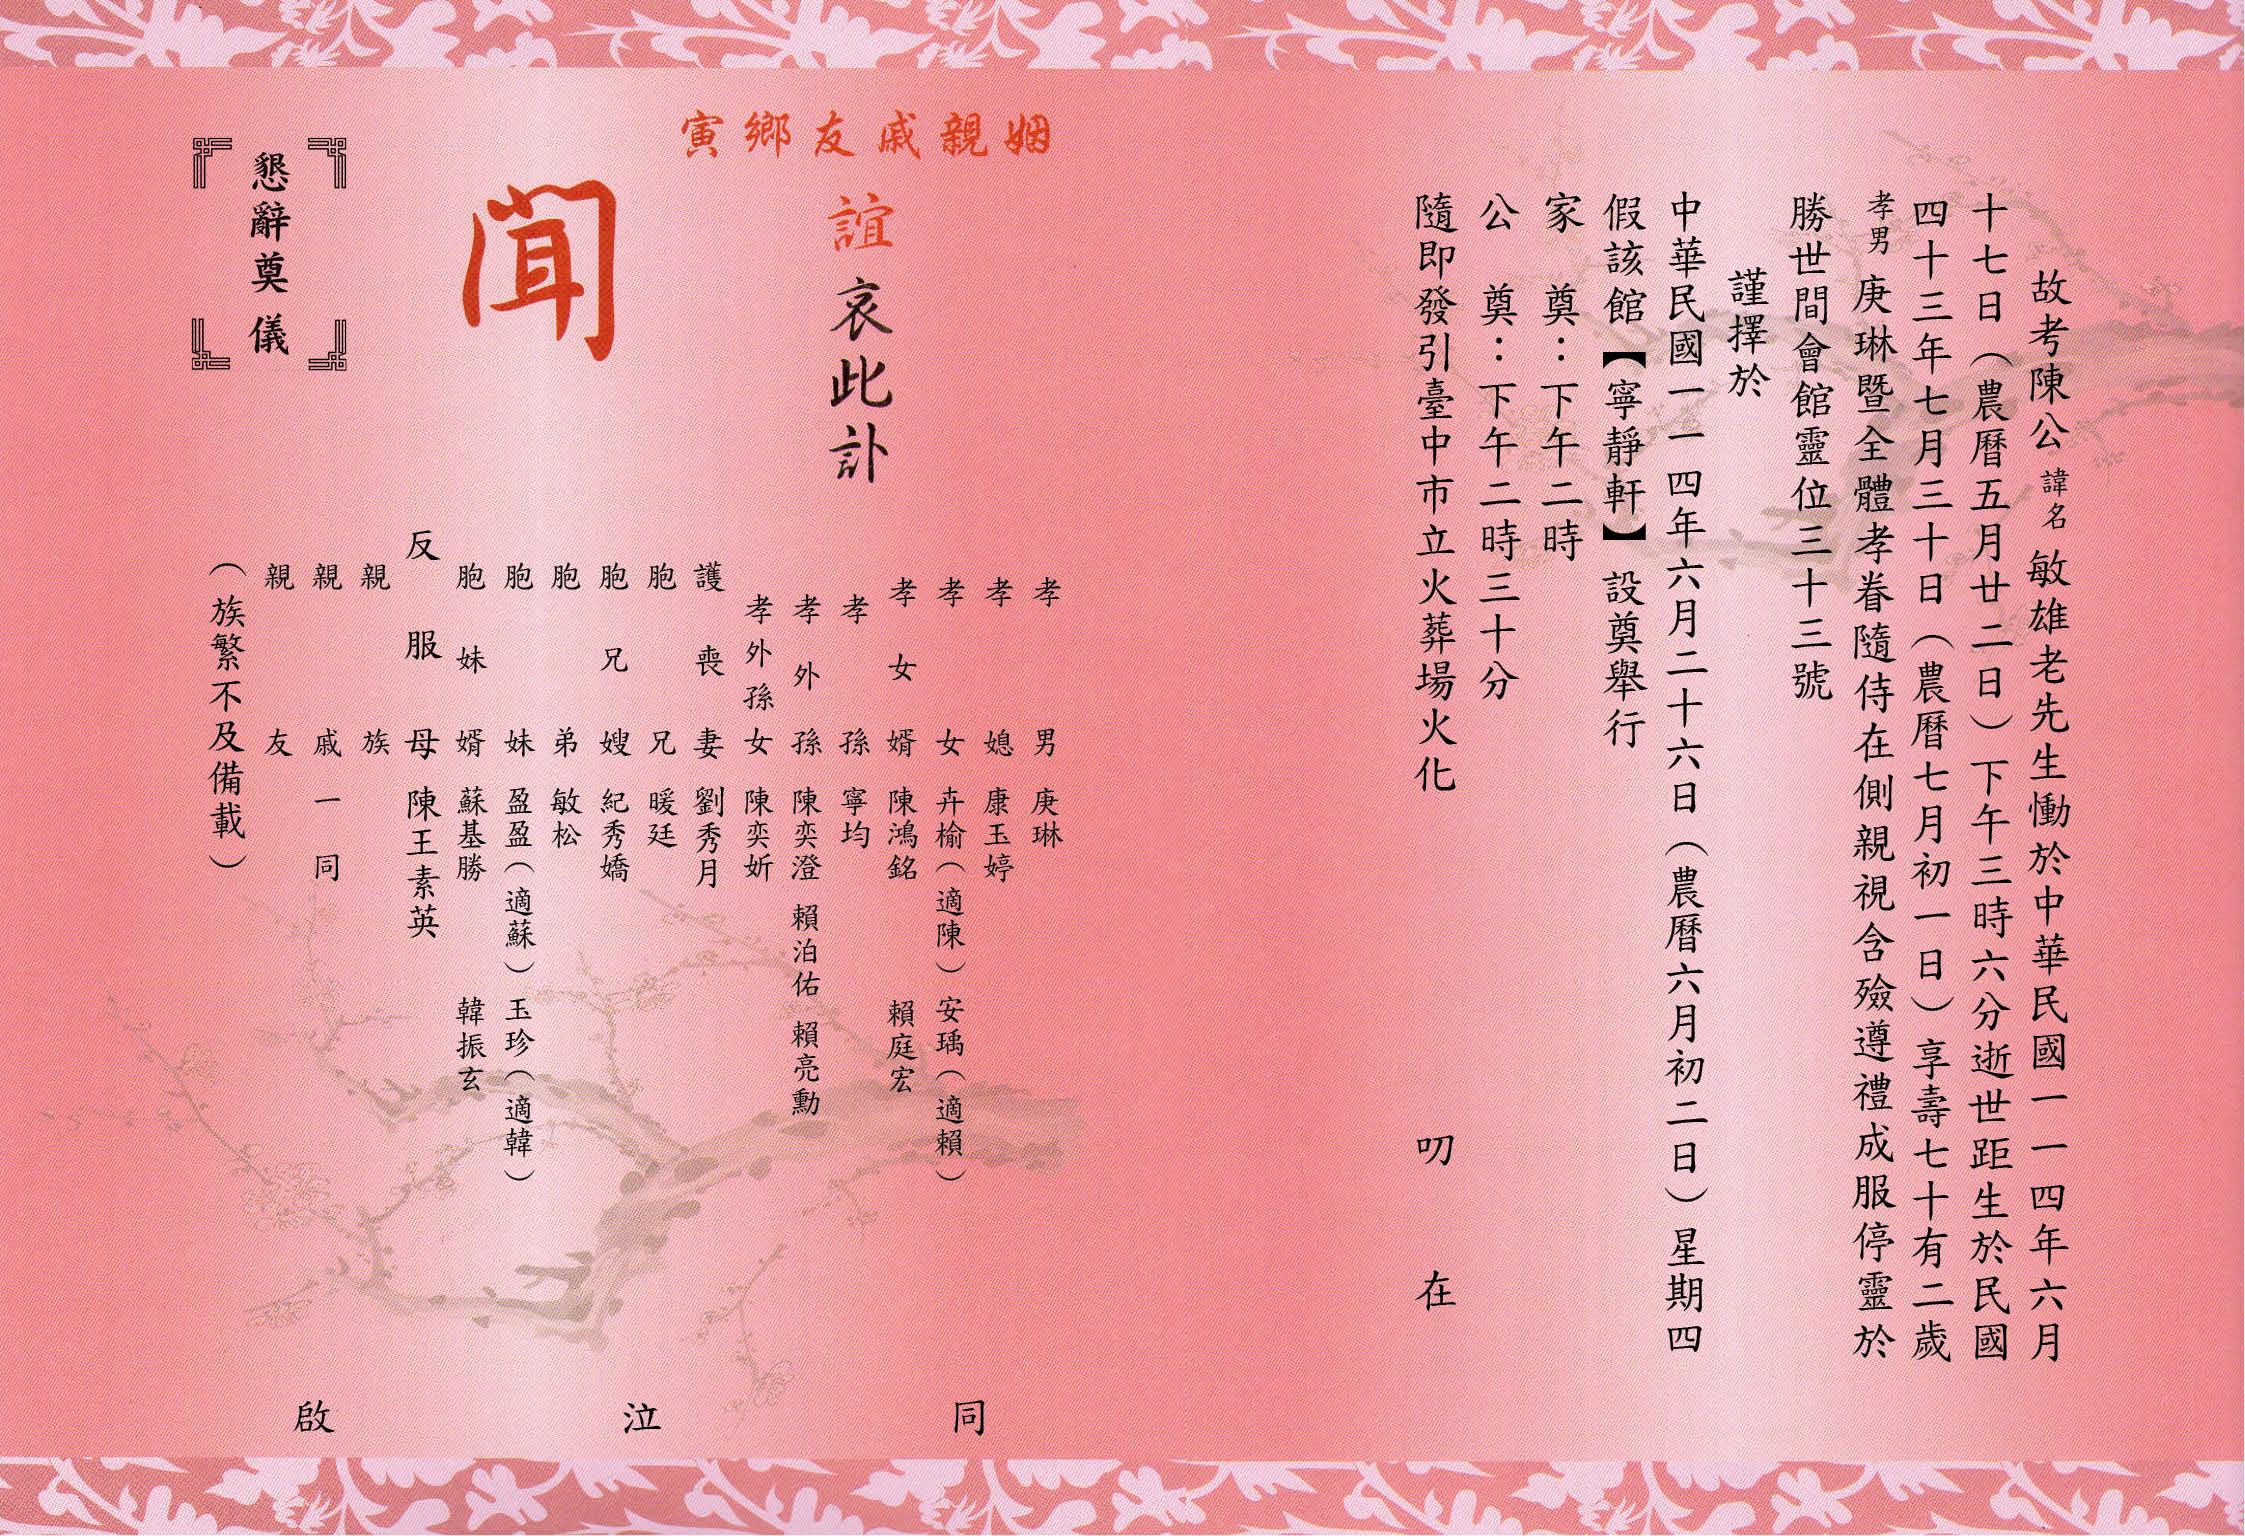 故考陳公諱名敏雄老先生慟於中華民國一一四年六月
十七日（農曆五月廿二日）下午三時六分逝世距生於民國
四十三年七月三十日（農曆七月初一日）享壽七十有二歲
孝男庚琳暨全體孝眷隨侍在側親視含殮遵禮成服停靈於
勝世間會館靈位三十三號
謹擇於
中華民國一一四年六月二十六日（農曆六月初二日）星期四
假該館【寧靜軒】設奠舉行
家奠：下午二時
公奠：下午二時三十分
隨即發引臺中市立火葬場火化
叨在
姻親戚友鄉寅
誼哀此訃
聞
孝男庚琳
孝媳康玉婷
孝女卉榆（適陳）安瑀（適賴）
孝女婿陳鴻銘 賴庭宏
孝孫寧均
孝外孫陳奕澄 賴泊佑 賴亮勳
孝外孫女陳奕妡
護喪妻劉秀月
胞兄暖廷
胞兄嫂紀秀嬌
胞弟敏松
胞妹盈盈（適蘇）玉珍（適韓）
胞妹婿蘇基勝 韓振玄
反服母陳王素英
親族
親戚一同
親友
（族繁不及備載）
同泣啟
懇辭奠儀